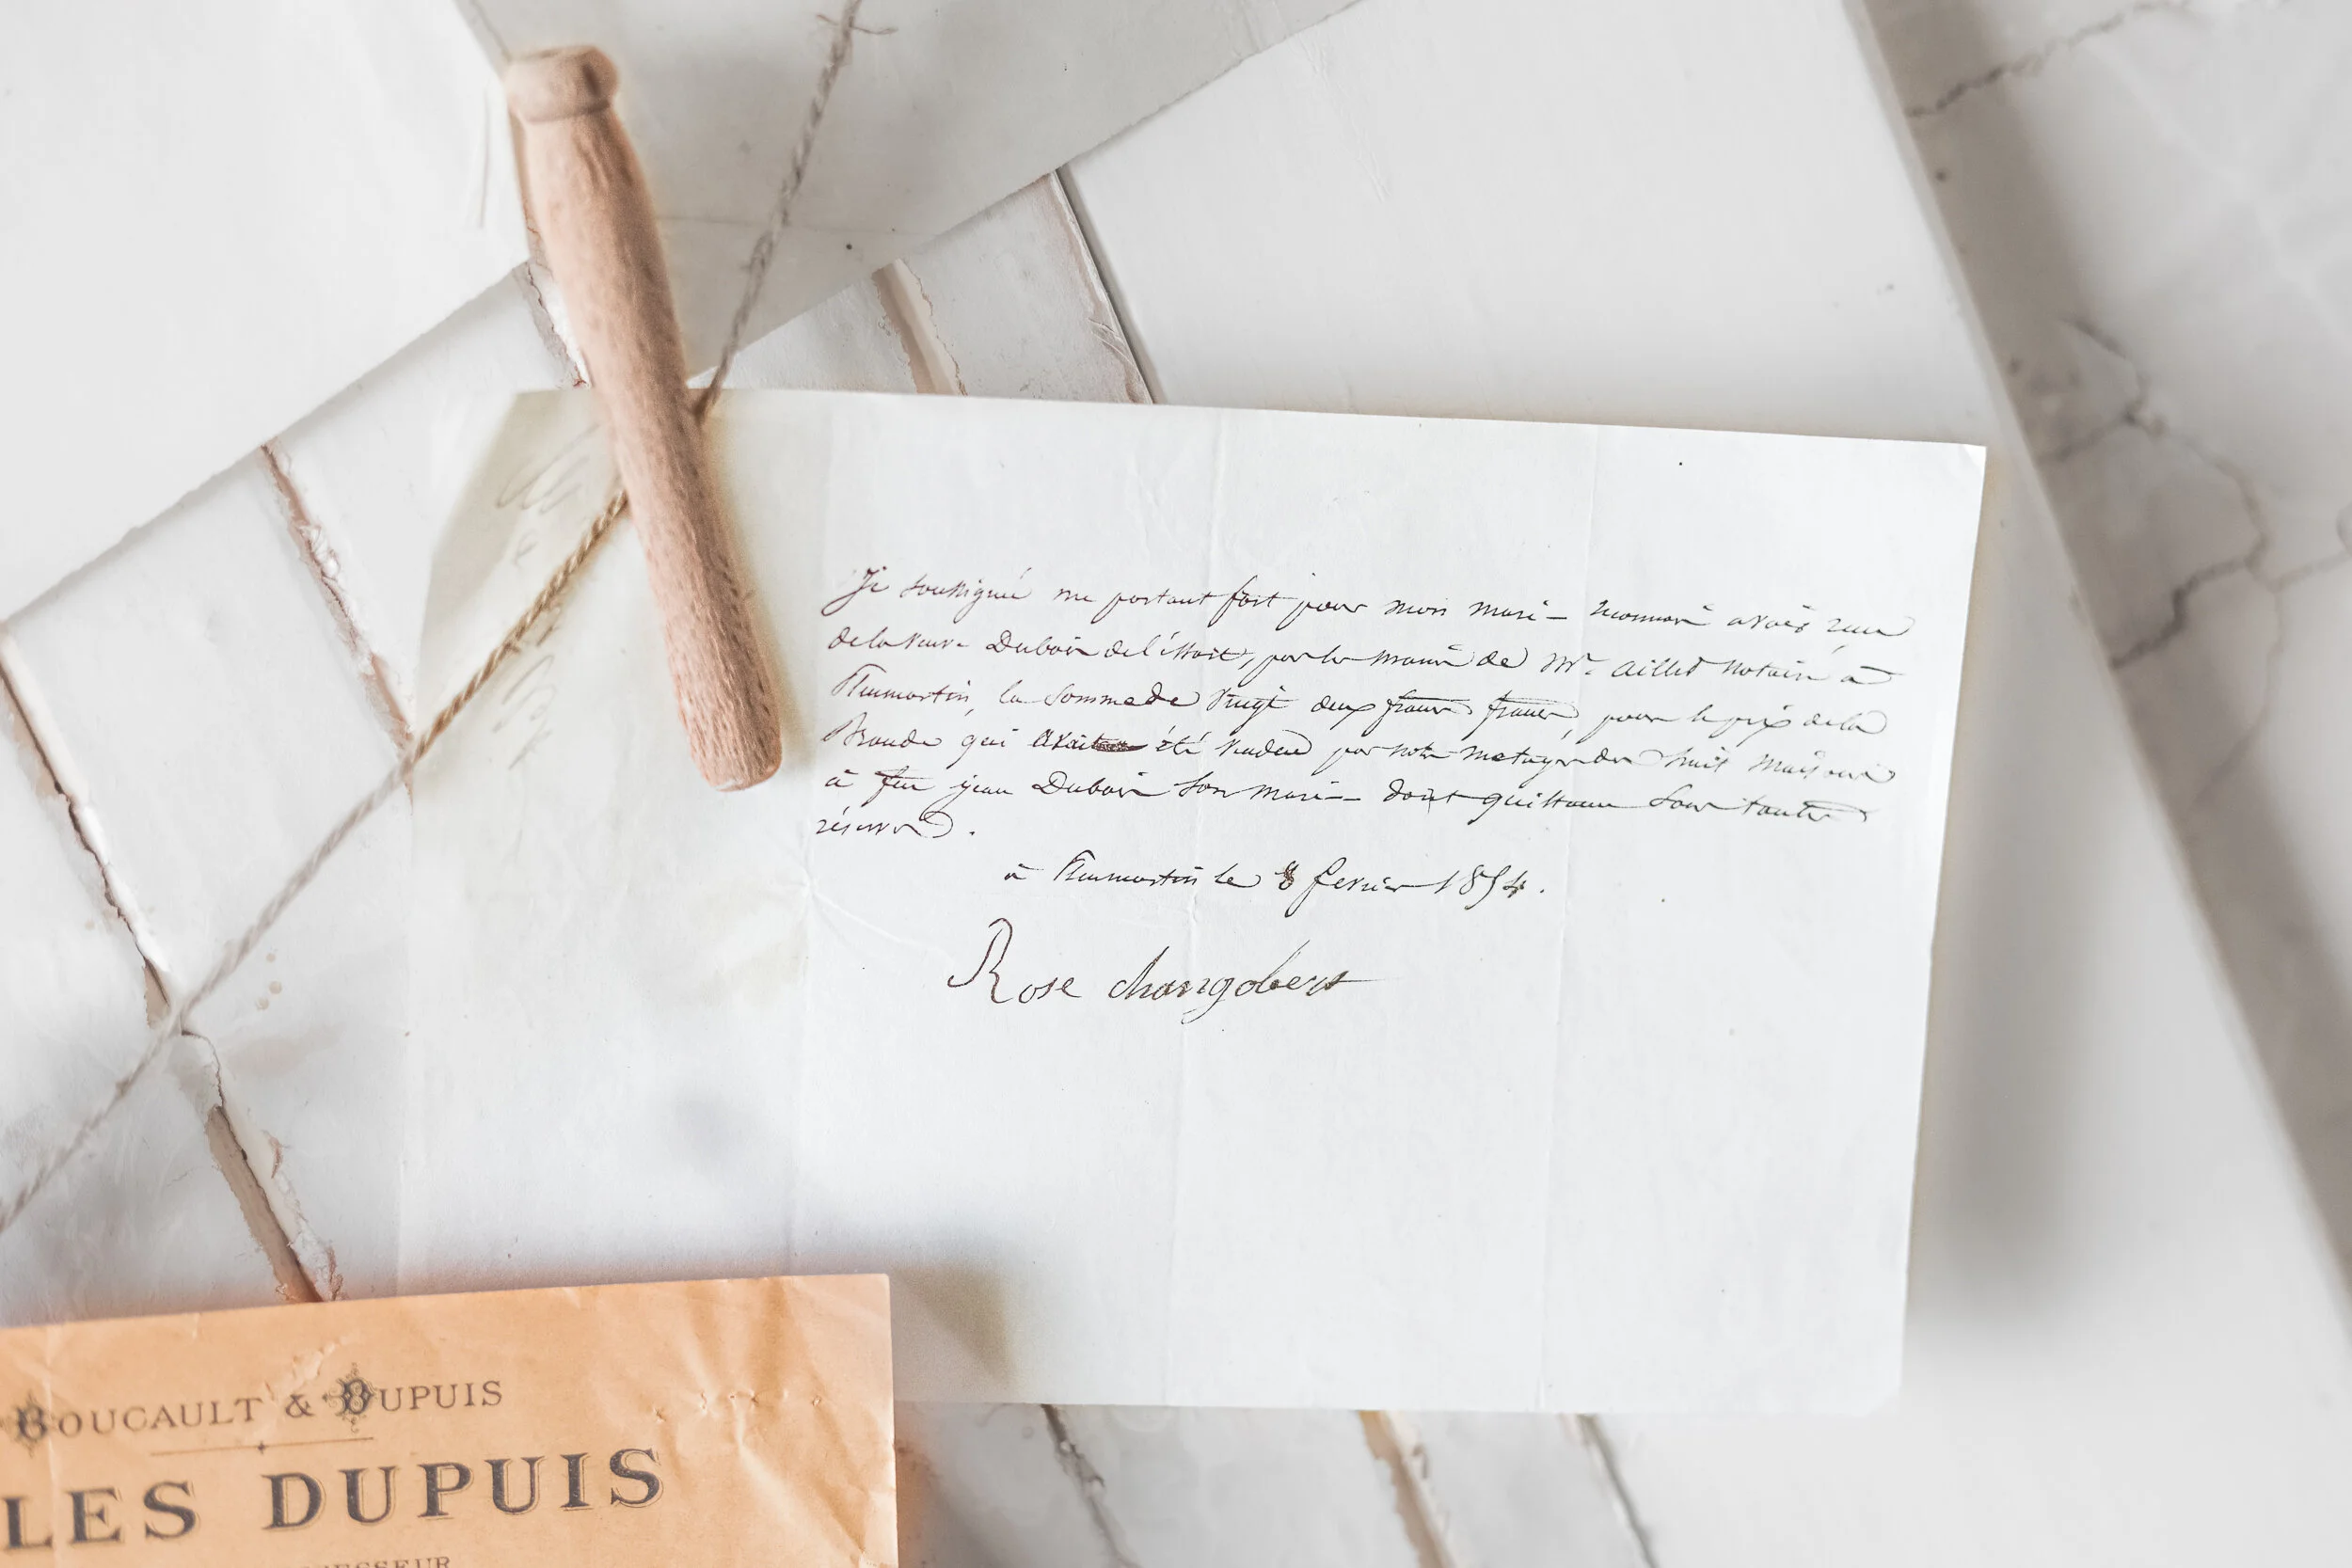 Je soussigné me portant fort pour mon mari – reconnais avoir reçu
de la veuve Dubois de par les mains de Mr. notaire à
Pleumartin, la somme de vingt deux francs francs, pour le prix de la
Brande qui avait été vendue par notre metayer des huit maisons
à feu jean Dubois son mari – dont quittance sous toutes
réserves.
à Pleumartin le 8 fevrier 1854.
Rose changobert
BOUCAULT & DUPUIS
LES DUPUIS
CESSEUR